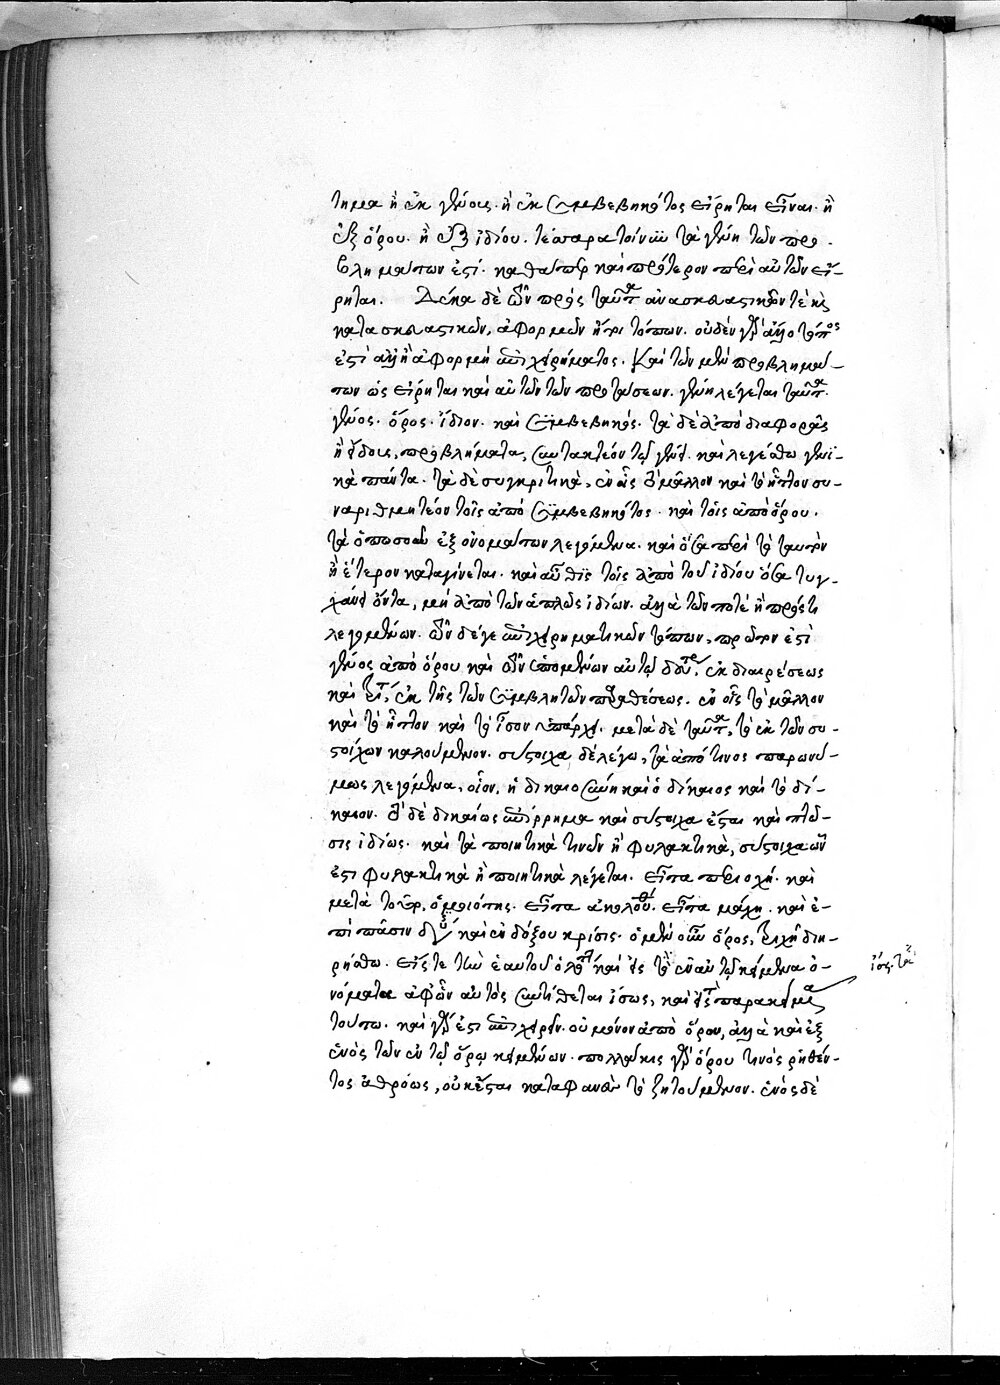 τημα ἢ ἐκ γένους· ἢ ἐκ συμβεβηκότος εἴρηται εἶναι· ἢ
ἐξ ὅρου· ἢ ἐξ ἰδίου. τέσσαρα τοίνυν τὰ γένη τῶν προ-
βλημάτων ἐστί· καθάπερ καὶ πρότερον περὶ αὐτῶν εἴ-
ρηται. Δέκα δὲ ὧν πρὸς ταῦτα ἀνασκευαστικῶν τὲ καὶ
κατασκευαστικῶν, ἀφορμῶν ἤτοι τόπων. οὐδὲν γὰρ ἄλλο τόπος
ἐστὶ ἀλλ' ἢ ἀφορμὴ ἐπιχειρήματος. Καὶ τῶν μὲν προβλημά-
των ὡς εἴρηται καὶ αὐτῶν τῶν προτάσεων. γένη λέγεται ταῦτα·
γένος· ὅρος· ἴδιον· καὶ συμβεβηκός. τὰ δὲ ἀπὸ διαφορᾶς
ἢ εἴδους, προβλήματα, συντακτέον τῷ γένει· καὶ λεγέσθω γενι-
κὰ πάντα. τὰ δὲ συγκριτικὰ, ἐν οἷς τὸ μᾶλλον καὶ τὸ ἧττον συ-
ναριθμητέον τοῖς ἀπὸ συμβεβηκότος· καὶ τοῖς ἀπὸ ὅρου.
τὰ ὁπωσοῦν ἐξ ὀνομάτων λεγόμενα· καὶ ὅσα περὶ τὸ ταυτὸν
ἢ ἕτερον καταγίνεται. καὶ αὖθις τοῖς ἀπὸ τοῦ ἰδίου ὅσα τυγ-
χάνει ὄντα, μὴ ἀπὸ τῶν ἁπλῶς ἰδίων. ἀλλὰ τῶν ποτὲ ἢ πρός τι
λεγομένων. ὧν δέ γε ἐπιχειρηματικῶν τόπων, πρῶτον ἐστὶ
γένος ἀπὸ ὅρου καὶ τῶν ἑπομένων αὐτῷ ἐκ διαιρέσεως
καὶ ἐκ τῆς τῶν συμβλητῶν παραθέσεως. ἐν οἷς τὸ μᾶλλον
καὶ τὸ ἧττον καὶ τὸ ἴσον ὑπάρχει. μετὰ δὲ ταῦτα, τὸ ἐκ τῶν συ-
στοίχων καλούμενον. σύστοιχα δὲ λέγω, τὰ ἀπό τινος παρωνύ-
μως λεγόμενα, οἷον, ἡ δικαιοσύνη καὶ ὁ δίκαιος καὶ τὸ δί-
καιον. τὸ δὲ δικαίως ἐπίρρημα καὶ σύστοιχα ἔσται καὶ πτῶ-
σις ἰδίως· καὶ τὰ ποιητικά τινων ἢ φυλακτικὰ, σύστοιχα ὧν
ἐστι φυλακτικὰ ἢ ποιητικὰ λέγεται. εἶτα περιοχή. καὶ
μετὰ ὁμοιότης. εἶτα ἀκολουθ. εἶτα μάχη. καὶ ἐ-
πὶ πᾶσιν καὶ ἐνδόξου κρίσις. ὁ μὲν οὖν ὅρος, διχῆ διη-
ρήσθω. εἴς τε τὸν ἑαυτοῦ ὅλον καὶ εἰς τὰ ἐν αὐτῷ κείμενα ὀ-
νόματα ἀφ' ὧν αὐτὸς συντίθεται ἴσως, καὶ παρακείμενα
τούτω. καὶ γὰρ ἔστι ἐπιχειρεῖν οὐ μόνον ἀπὸ ὅρου, ἀλλὰ καὶ ἐξ
ἑνὸς τῶν ἐν τῷ ὅρῳ κειμένων. πολλάκις γὰρ ὅρου τινὸς ῥηθέν-
τος ἀθρόως, οὐκ ἔσται καταφανὲς τὸ ζητούμενον. ἑνὸς δὲ